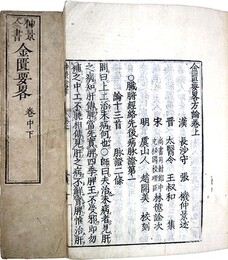 仲景全書
金匱要略
卷中下
金匱要略方論卷上
漢 長沙守 張 機仲景述
晉 太醫令 王叔和 集
宋 林億詮次
明 虞山人 趙開美 校刻
臟腑經絡先後病脉證第一
論十三首 脉證二條
問曰上工治未病何也師曰夫治未病者見肝
之病知肝傳脾當先實脾四季脾王不受邪即勿
補之中工不曉相傳見肝之病不解實脾惟治肝